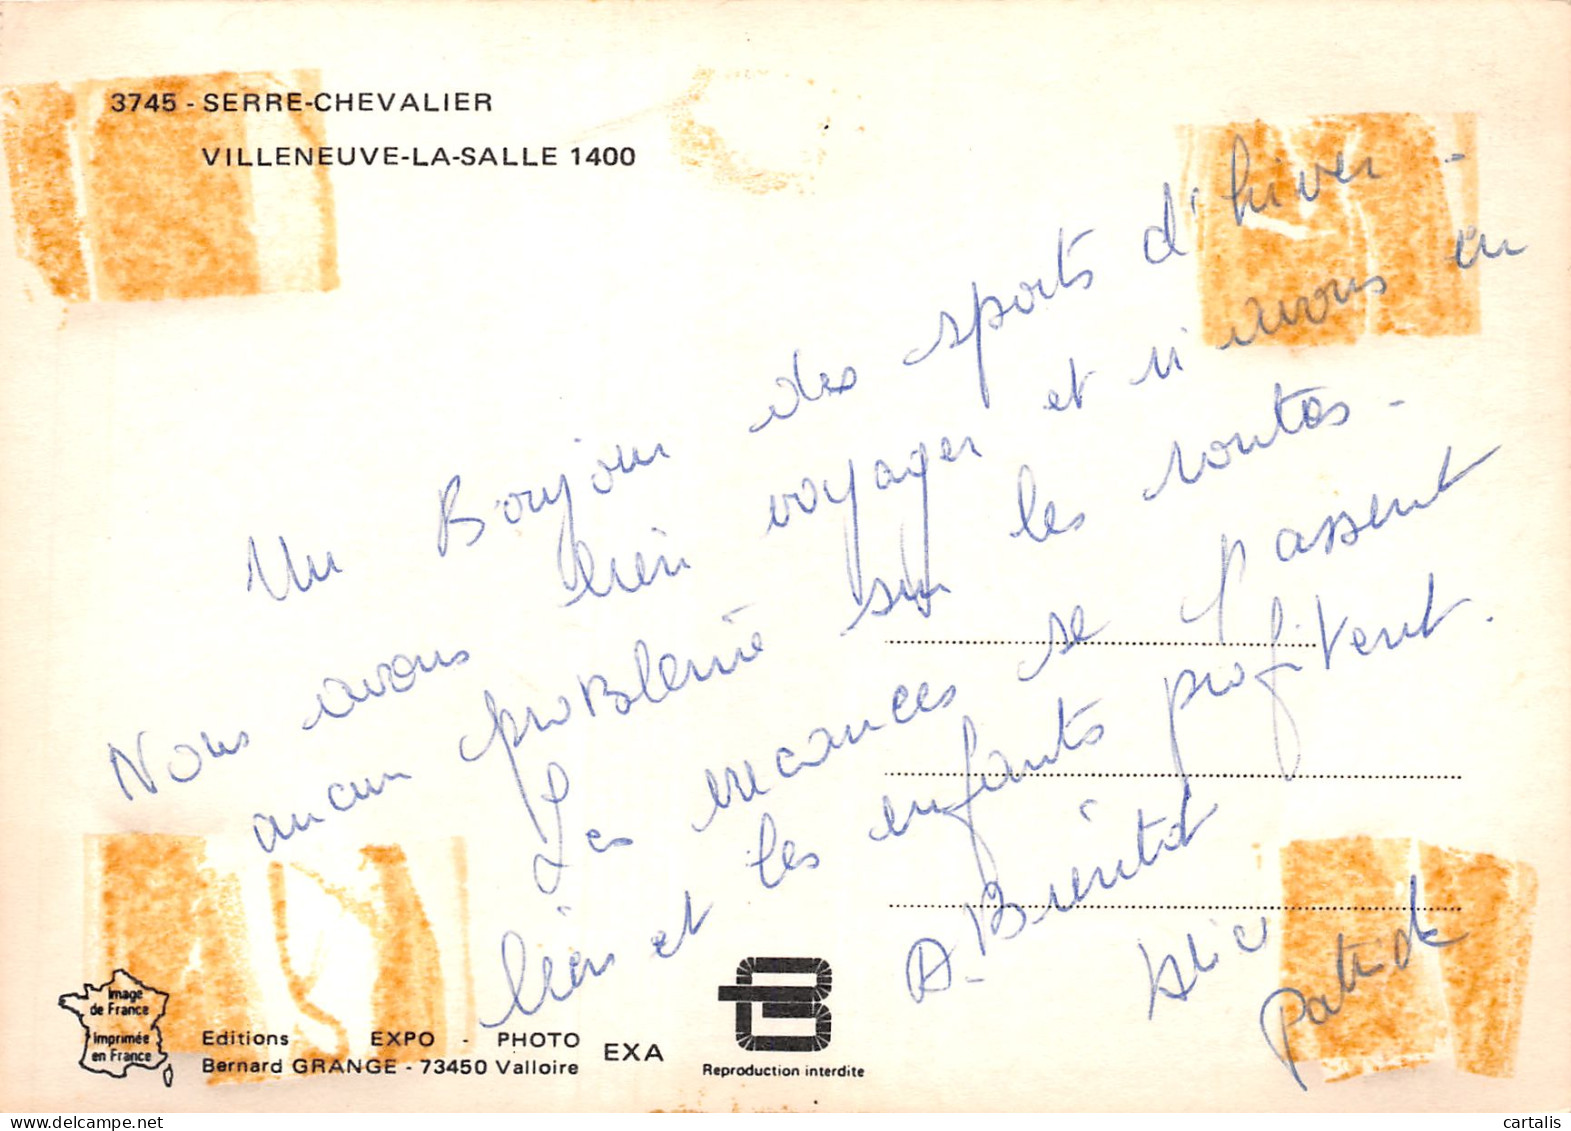 3745 - SERRE-CHEVALIER
VILLENEUVE-LA-SALLE 1400
Un Bonjour des sports d'hiver -
Nous avons bien voyager et n'avons eu
aucun problème sur les routes -
Les vacances se passent
bien et les enfants profitent.
A Bientôt
Patrick
Image
de France
Imprimée
en France
Editions EXPO - PHOTO
Bernard GRANGE - 73450 Valloire
EXA
Reproduction interdite
cartalis